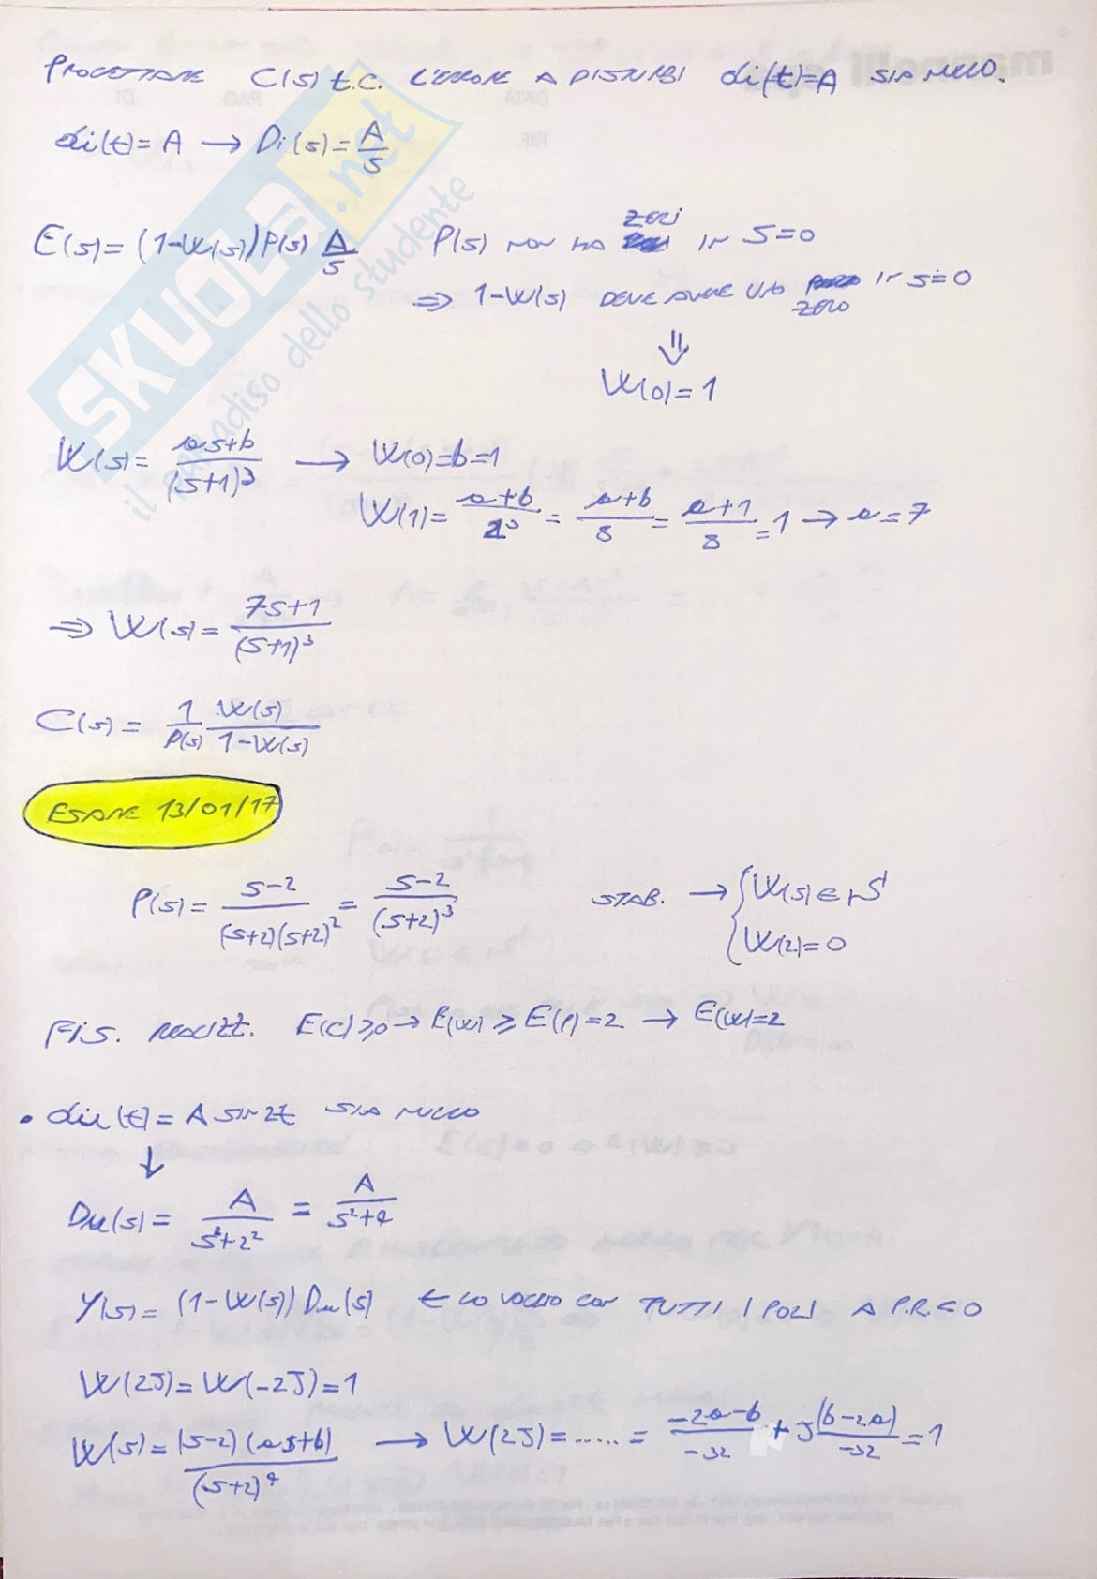 PROGETTARE C(s) t.c. L'ERRORE A DISTURBI di(t)=A SIA NULLO.
di(t)=A → Di(s)=A/s
E(s)=(1-W(s))P(s) A/s P(s) NON HA ZERI IN S=0
⇒ 1-W(s) DEVE AVERE UNO ZERO IN s=0
⇓
W(0)=1
W(s)= (as+b)/(s+1)³ → W(0)=b=1
W(1)= (a+b)/2³ = (a+b)/8 = (a+1)/8 = 1 → a=7
⇒ W(s)= (7s+1)/(s+1)³
C(s)= 1/P(s) W(s)/(1-W(s))
ESAME 13/01/17
P(s)= (s-2)/((s+2)(s+2)²) = (s-2)/(s+2)³ STAB. → { W(s)∈ S
W(2)=0
FIS. REALIZZ. E(C)≥0 → E(W)≥E(P)=2 → E(W)=2
• du(t)=A sin2t SIA NULLO
↓
Du(s)= A/(s²+2²) = A/(s²+4)
Y(s)= (1-W(s)) Du(s) ← LO VOGLIO CON TUTTI I POLI A P.R.<0
W(2J)=W(-2J)=1
W(s)= (s-2)(as+b)/(s+2)⁴ → W(2J)=.....= (-2a-b)/-32 + J (b-2a)/-32 =1
SKUOLA.net
il paradiso dello studente